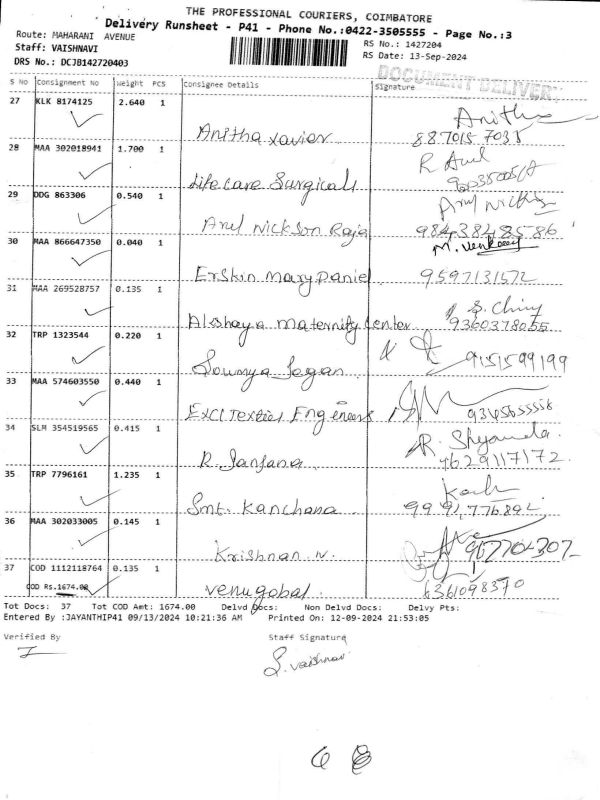 THE PROFESSIONAL COURIERS, COIMBATORE
Delivery Runsheet - P41 - Phone No.:0422-3505555 - Page No.:3
Route: MAHARANI AVENUE
RS No.: 1427204
Staff: VAISHNAVI
RS Date: 13-Sep-2024
DRS No.: DCJB142720403
DOCUMENT DELIVERY
S No Consignment No Weight PCS Consignee Details Signature
27 KLK 8174125 2.640 1
Anitha xavier 8870157035
Anitha
28 MAA 302018941 1.700 1
Life care Surgicals
29 DDG 863306 0.540 1
Arul Nickson Raja
30 MAA 866647350 0.040 1
M. Venkasey
Erskin mary Daniel 9597131572
31 MAA 269528757 0.135 1
Akshaya maternity Center 9360378055
32 TRP 1323544 0.220 1
Sowmya Jegan 9151599199
33 MAA 574603550 0.440 1
Excl Textiles Engineers
34 SLM 354519565 0.415 1
R. Shyamala
R Janjana 9629117172
35 TRP 7796161 1.235 1
Smt. Kanchana
36 MAA 302033005 0.145 1
Krishnan N.
37 COD 1112118764 0.135 1
COD Rs.1674.00
Venugobal 6361098370
Tot Docs: 37 Tot COD Amt: 1674.00 Delvd Docs: Non Delvd Docs: Delvy Pts:
Entered By :JAYANTHIP41 09/13/2024 10:21:36 AM Printed On: 12-09-2024 21:53:05
Verified By Staff Signature
S. Vaishnavi